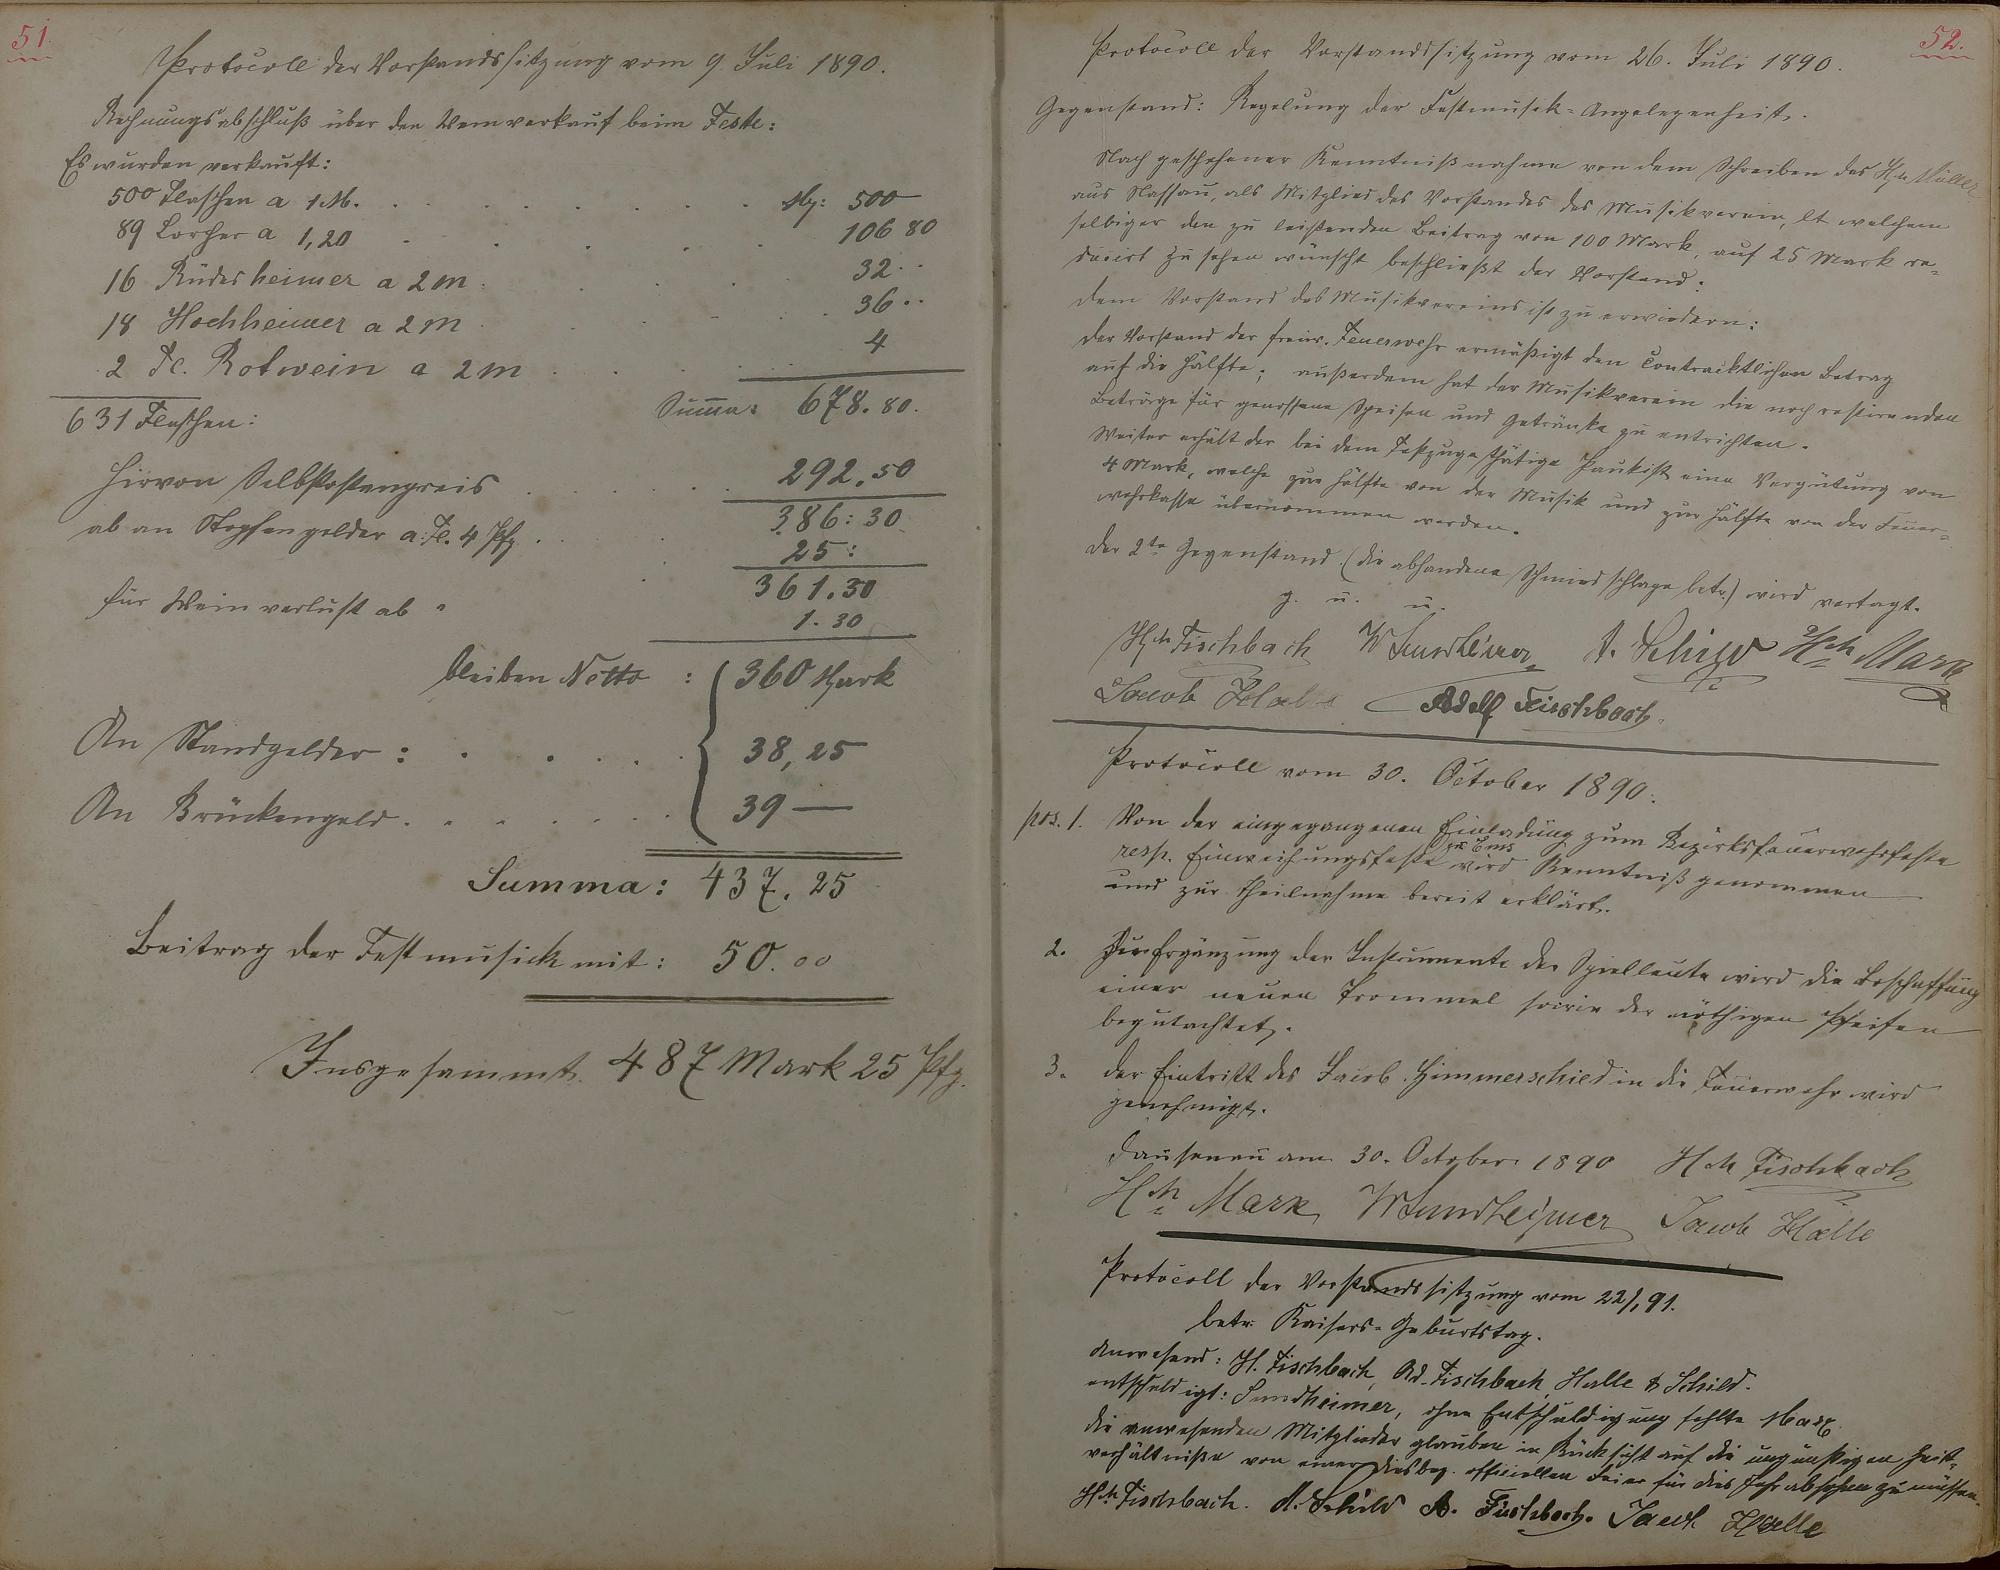 51.
Protocoll der Vorstandssitzung vom 9. Juli 1890.
Rechnungsabschluß über den Weinverkauf beim Feste:
Es wurden verkauft:
500 Flaschen a 1 M. . . . . . . . . Mq: 500 —
89 Lorcher a 1,20 . . . . . 106 80
16 Rüdesheimer a 2 M. . . . . 32 ..
18 Hochheimer a 2 M . . . . . 36 ..
2 Fl. Rotwein a 2 M . . . . . 4
631 Flaschen: Summa: 678.80.
Hirvon Selbstkostenpreis . . . . . . 292.50
386:30
ab an Stopfengelder a. Fl. 4 Pfg . . . 25:
361.30
für Wein verlust ab " 1.30
bleiben Netto : 360 Mark
An Standgelder : . . . . . 38,25
An Brückengeld . . . . . . . 39 —
Summa: 437.25
Beitrag der Festmusick mit: 50.00
Insgesammt. 487 Mark 25 Pfg.
52.
Protocoll der Vorstandssitzung vom 26. Juli 1890.
Gegenstand: Regelung der Festmusik-Angelegenheit.
Nach geschehener Kenntnißnahme von dem Schreiben des Hch. Müller
aus Nassau, als Mitglied des Vorstandes des Musikverein, lt welchem
selbiger den zu leistenden Beitrag von 100 Mark, auf 25 Mark re-
ducirt zu sehen wünscht beschließt der Vorstand:
Dem Vorstand des Musikvereins ist zu erwiedern:
Der Vorstand der freiw. Feuerwehr ermäßigt den Contracktlichen Betrag
auf die Hälfte; außerdem hat der Musikverein die noch restirenden
Beträge für genossene Speisen und Getränke zu entrichten.
Weiter erhält der bei dem Festzuge thätige Paukist eine Vergütung von
4 Mark, welche zur Hälfte von der Musik und zur Hälfte von der Feuer-
wehrkasse übernommen werden.
Der 2te Gegenstand (die abhandene Schmiedschlage betr.) wird vertagt.
g. u. u.
Hch Fischbach W Sundheimer A. Schild Hch Mark
Jacob Halle Adolf Fischbach.
Protocoll vom 30. October 1890.
pos. 1. Von der eingegangenen Einladung zum Bezirksfeuerwehrfeste
resp. Einweihungsfeste zu Ems wird Kenntniß genommen
und zur Theilnahme bereit erklärt.
2. Zur Ergänzung der Instrumente der Spielleute wird die Beschaffung
einer neuen Trommel sowie der nöthigen Pfeifen
begutachtet.
3. Der Eintritt des Jacob Himmerschied in die Feuerwehr wird
genehmigt.
Dausenau am 30. October 1890 Hch Fischbach
Hch Mark W Sundheimer Jacob Halle
Protocoll der Vorstandssitzung vom 22/1 91.
betr. Kaisers-Geburtstag.
Anwesend: H. Fischbach, Ad. Fischbach, Halle & Schild.
entschuldigt: Sundheimer, ohne Entschuldigung fehlte Mark.
Die anwesenden Mitglieder glauben in Rücksicht auf die ungünstigen Zeit-
verhältniße von einer diesbez. officiellen Feier für dies Jahr absehen zu müssen.
Hch Fischbach. A. Schild A. Fischbach. Jacob Halle